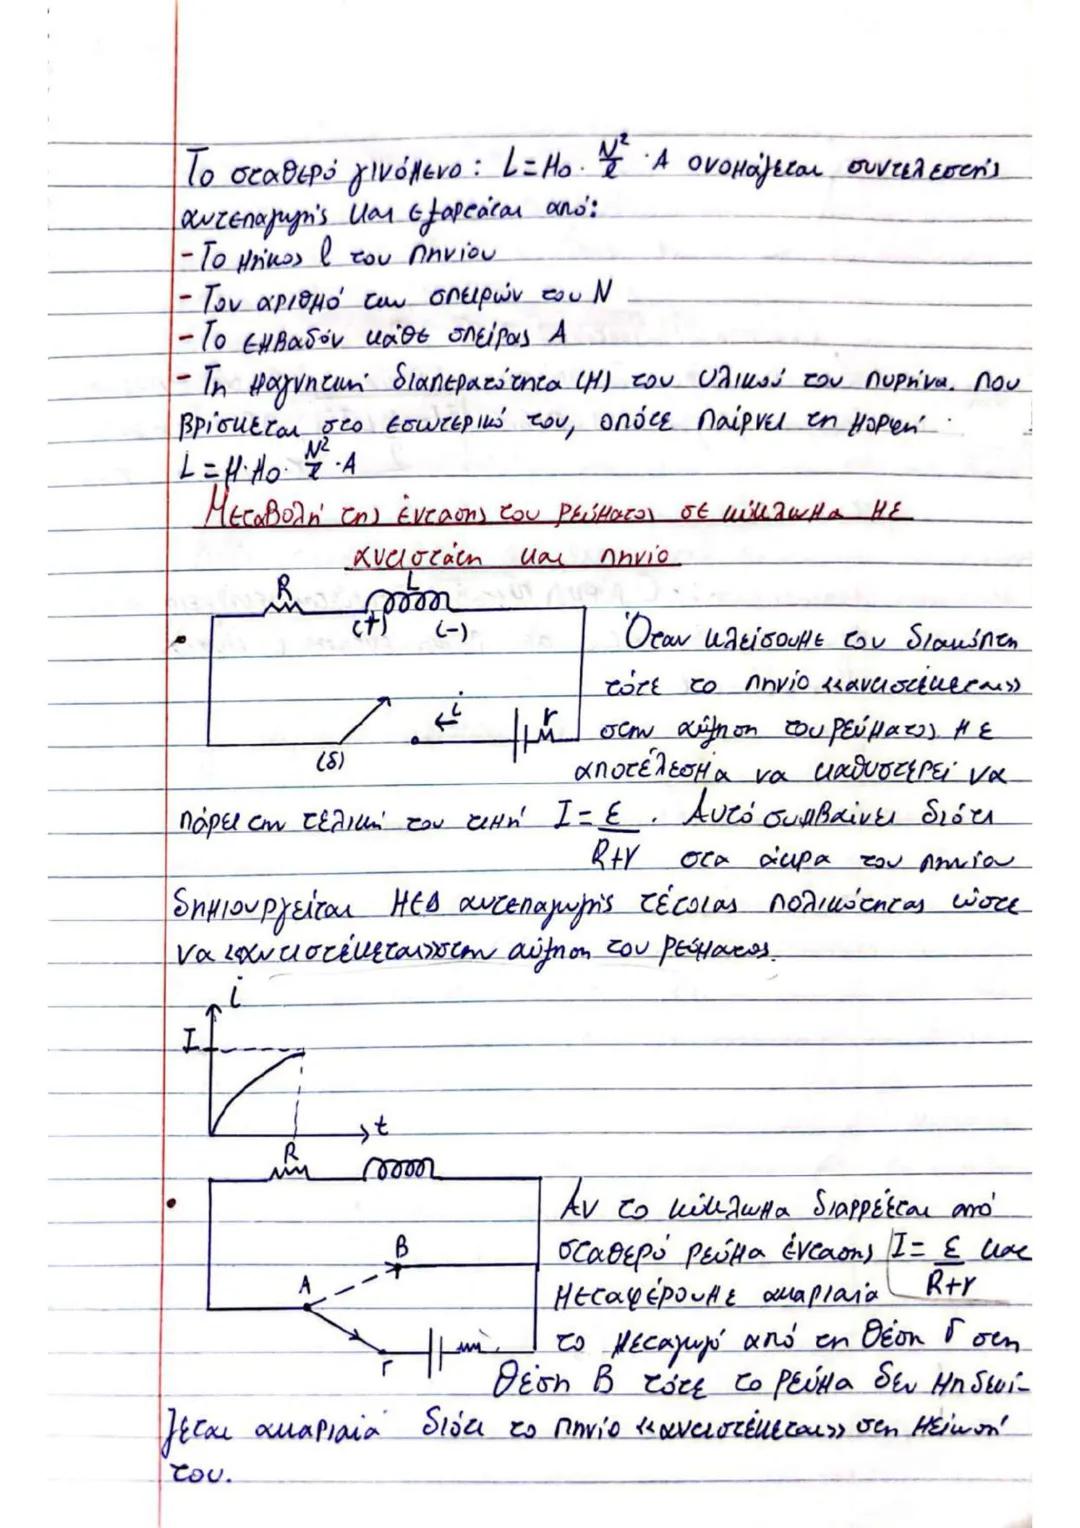 Το σταθερό γινόμενο: L=μ₀·N²/l·A ονομάζεται συντελεστής
αυτεπαγωγής και εξαρτάται από:
-Το μήκος l του πηνίου
-Τον αριθμό των σπειρών του N
-Το εμβαδόν κάθε σπείρας A
-Τη μαγνητική διαπερατότητα (μ) του υλικού του πυρήνα. που
βρίσκεται στο εσωτερικό του, οπότε παίρνει τη μορφή
L=μ·μ₀·N²/l·A
Μεταβολή της έντασης του ρεύματος σε κύκλωμα με
αντιστάτη και πηνίο
R L
(+) (-)
Όταν κλείσουμε τον διακόπτη
τότε το πηνίο «αντιστέκεται»
i
r
στην αύξηση του ρεύματος με
(δ)
αποτέλεσμα να καθυστερεί να
πάρει την τελική του τιμή I=ε/R+r. Αυτό συμβαίνει διότι
στα άκρα του πηνίου
δημιουργείται ΗΕΔ αυτεπαγωγής τέτοιας πολικότητας ώστε
να «αντιστέκεται»στην αύξηση του ρεύματος.
i
I
t
R
Αν το κύκλωμα διαρρέεται από
σταθερό ρεύμα έντασης I=ε/R+r και
B
A
μεταφέρουμε ακαριαία
το μεταγωγό από τη θέση Γ στη
Γ
θέση B τότε το ρεύμα δεν μηδενί-
ζεται ακαριαία διότι το πηνίο «αντιστέκεται» στη μείωσή
του.